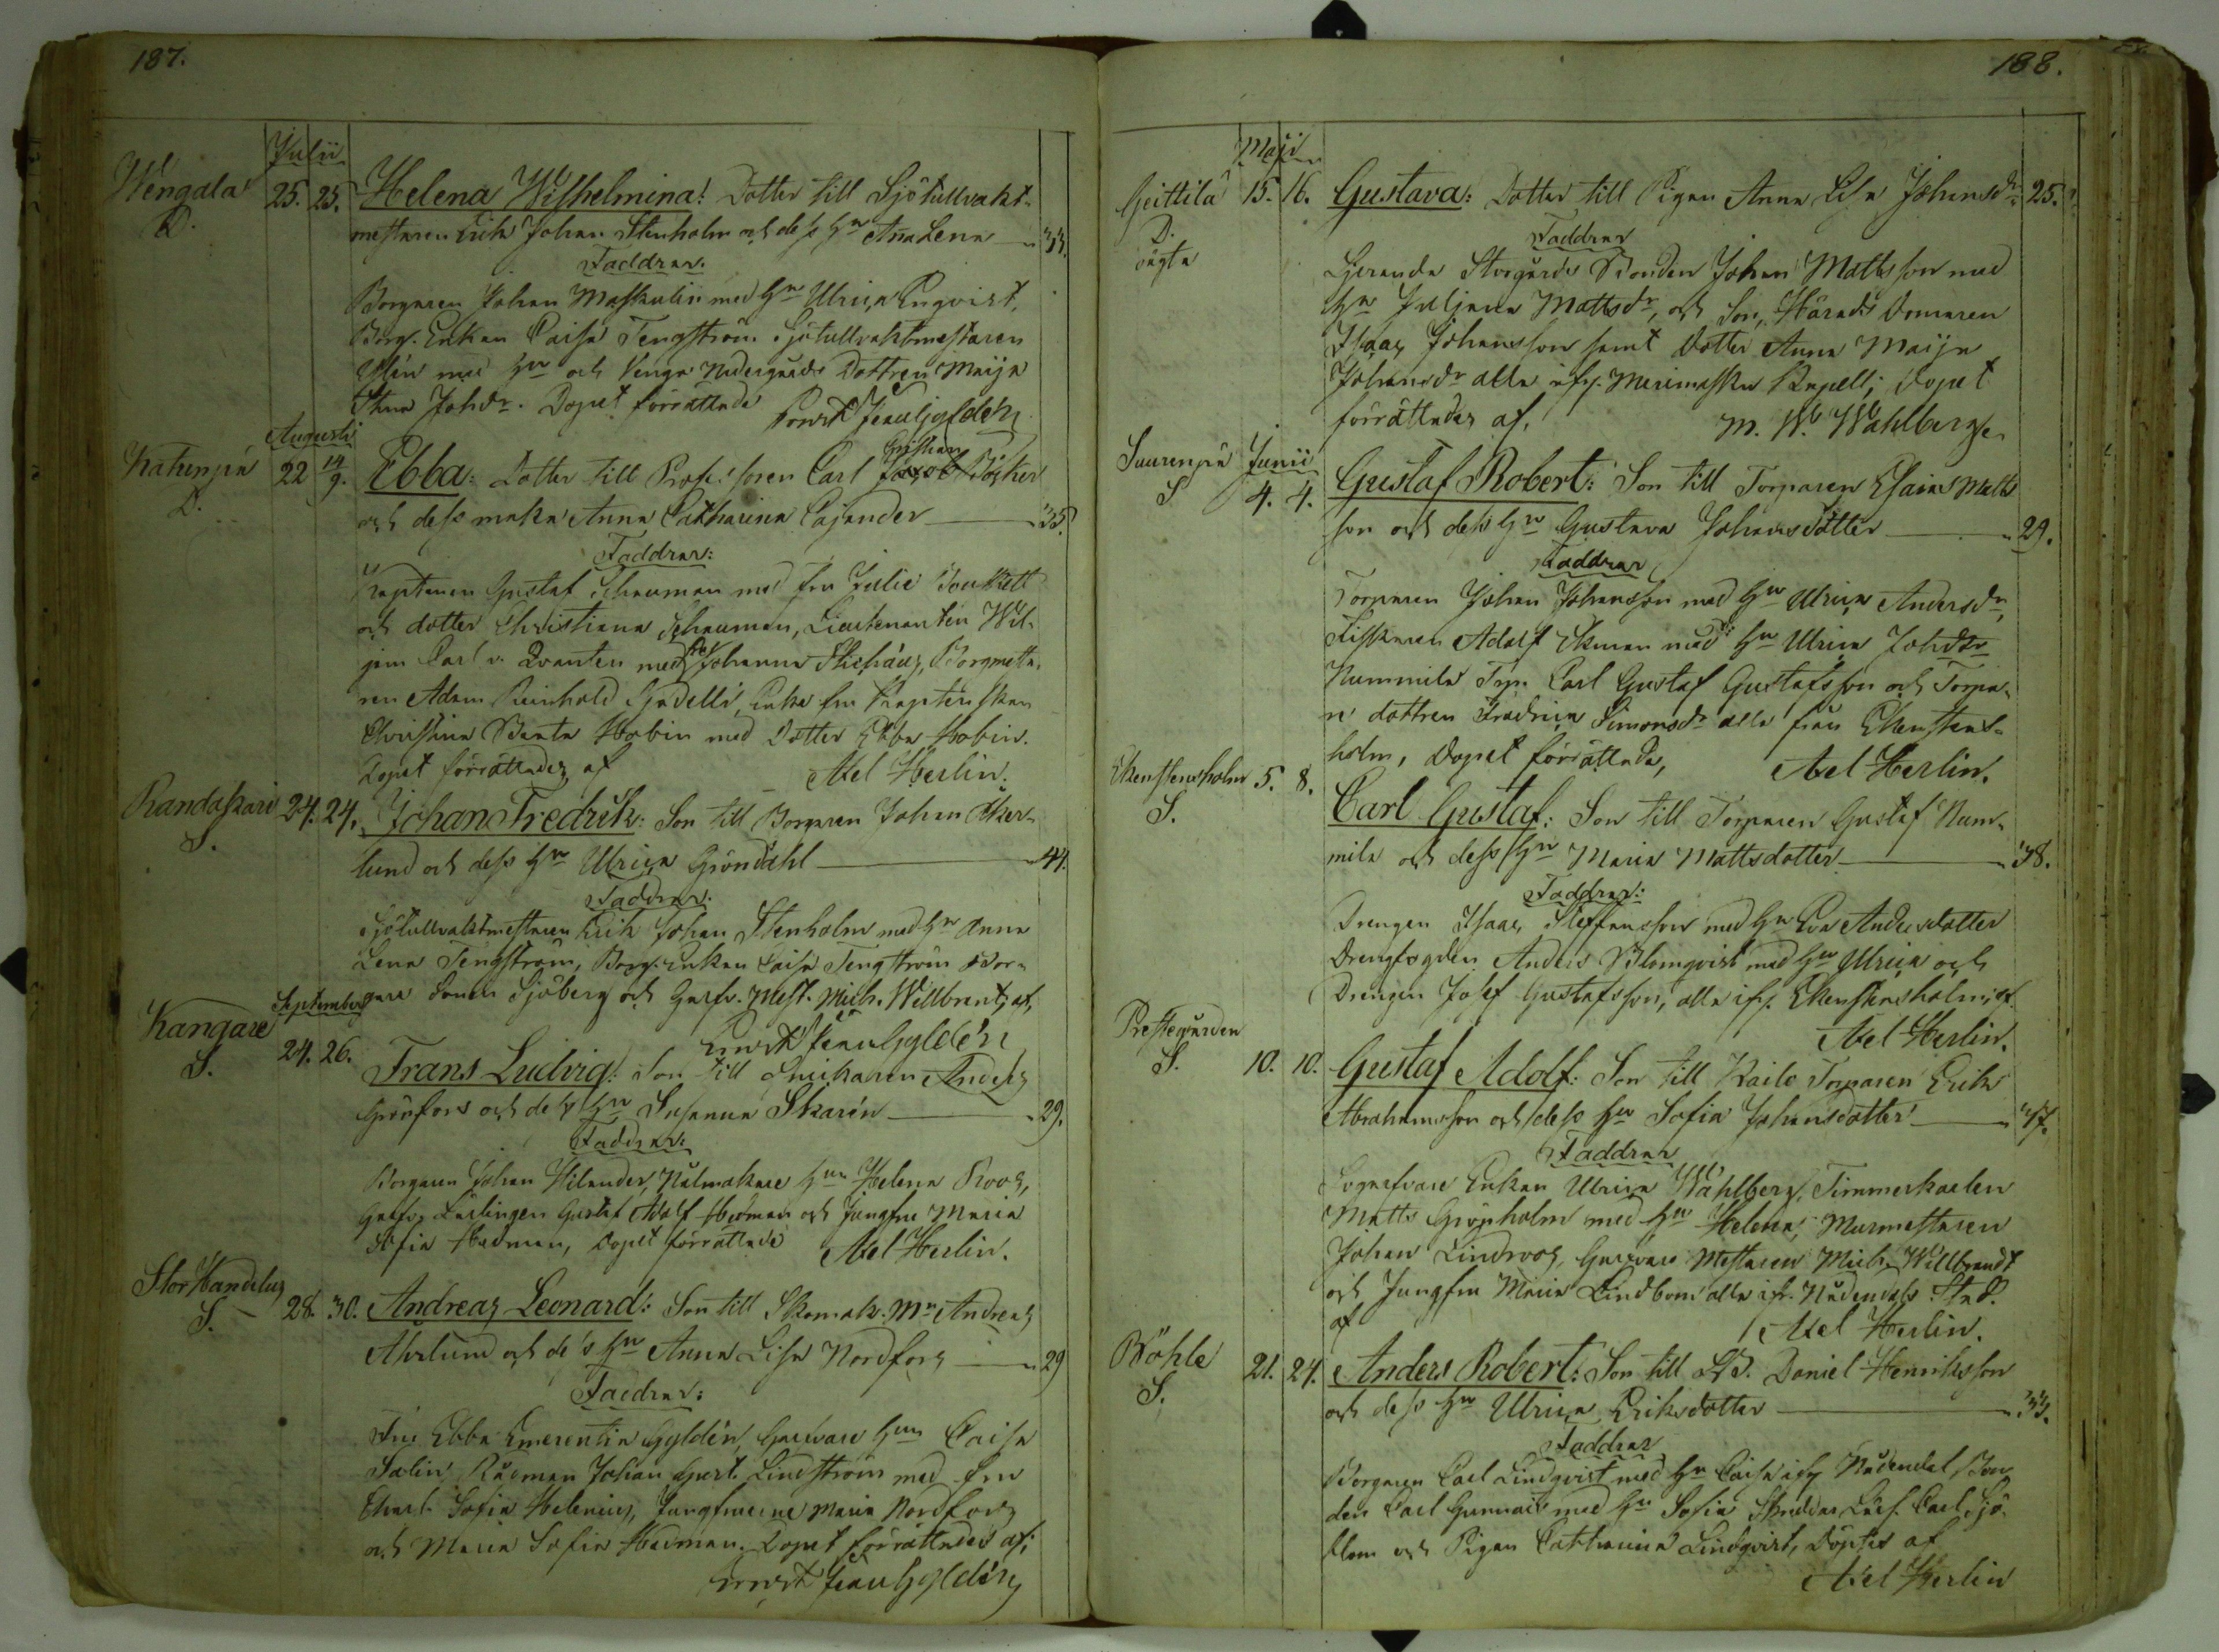 187.
Julii
Wengala 25. 25. Helena Wilhelmina: Dotter till Sjötullvakt-
D. mestaren Erik Johan Stenholm och dess Hu Anna Lena 33.
Faddrar.
Borgaren Johan Maskulin med Hu Ulrica Enqvist,
Borg. Enkan Caisa Tengström Sjötullvaktmestaren
med Hu och Dottren Maija
Stina Johdr. Dopet förrättade
Ernst Jean Gyldén
Augusti
22 14/9. Ebba: Dotter till Carl Jacob
Christian
D. och dess maka Anna Catharina Cajander 35.
Faddrar:
Kaptenen Gustaf Schauman med fru Julie
och dotter Christiana Schauman, Lieutenanten Wil-
Carl v. Qvanten med Johanna Borgmesta-
ren Adam Reinhold Enke fru Kaptenskan
Christina Beata Hobin med Dotter Ebba Hobin.
Dopet förrättades af Axel Herlin.
Randaskari 24. 24. Johan Fredrik: Son till Borgaren Johan Åker-
S. lund och dess Hu Ulrica Gröndahl 44.
Faddrar.
Sjötullvaktmestaren Erik Johan Stenholm med Hu Anna
Lena Tengström, Borg. Enkan Caisa Tengström Bor-
gare Sonen Sjöberg och Garfv. Mest. Mich. Willbrant, af,
Ernst Jean Gyldén
September
Kangare 24. 26. Frans Ludvig: Son till Snickaren Anders
S. Grönfors och dess Hu Susanna Skarén 29.
Faddrar:
Borgaren Johan Wilander, Nålmakare Hun Helena Roos,
Garfv. Lärlingen Gustaf Adolf Hedman och Jungfru Maria
Sofia Hedman, Dopet förrättade Axel Herlin.
Stor Handeluz 28. 30. Andreas Leonard: Son till Skomak. Mn Andreas
S. Ahrlund och dess Hu Anna Lisa Nordfors 29
Faddrar:
Fru Ebba Emerentia Gyldén, Garfvare Hun Caisa
Salin Rådman Johan Lindström med fru
Sofia Helenius, Jungfruerne Maria Nordfors
och Maria Sofia Hedman. Dopet förrättades af,
Ernst Jean Gyldén
188.
Maji
Geittilä 15. 16. Gustava: Dotter till Pigan Anna Lisa Johansdr 25.
D. Faddrar
oägta Storgårds Bonden Johan Mattsson med
Hu Juljana Mattsdr, och Son, Härads Domaren
Isaac Johansson samt Dotter Anna Maija
Johansdr alla ifr. Merimasku Kapell; Dopet
förrättades af, M. W. Wahlberg
Junii
Suurenpä 4. 4. Gustaf Robert: Son till Torparen Esaias Matts
S son och dess Hu Gustava Johansdotter 29.
Faddrar
Torparen Johan Johansson med Hu Ulrica Andersdr,
Fiskaren Adolf Ekman med Hu Ulrica Johdr
Nummila Torp. Carl Gustaf Gustafsson och Torpa-
re dottren Fredrica Simonsdr alla från Ekenstens-
holm, Dopet förrättade, Axel Herlin.
Ekenstensholm 5. 8. Carl Gustaf: Son till Torparen Gustaf Num-
S. mila och dess Hu Maria Mattsdotter 38.
Faddrar:
Drengen Isaac Steffansson med Hu Eva Andersdotter
Drengfogden Anders Blomqvist med Hu Ulrica och
Drengen Josef Gustafsson, alla ifr. Ekenstensholm; af
Axel Herlin.
Prestegården 10. 10. Gustaf Adolf: Son till Kailo Torparen Erik
S. Abrahamsson och dess Hu Sofia Johansdotter 47.
Faddrar
Enkan Ulrica Wahlberg, Timmerkarlen
Matts Grönholm med Hu Helena, Murmestaren
Johan Lindroos, Garfvare Mestaren Mich. Willbrandt
och Jungfru Maria Lindbom alla ifr. Nådendals Stad.
af Axel Herlin.
Böhle 21. 24. Anders Robert: Son till Daniel Henriksson
S. och dess Hu Ulrica Eriksdotter 33.
Faddrar
Borgaren Carl Lindqvist med Hu Caisa ifr Nådendal, Bon-
den Carl med Hu Sofia Carl Sjö-
blom och Pigan Catharina Lindqvist, Döptes af
Axel Herlin